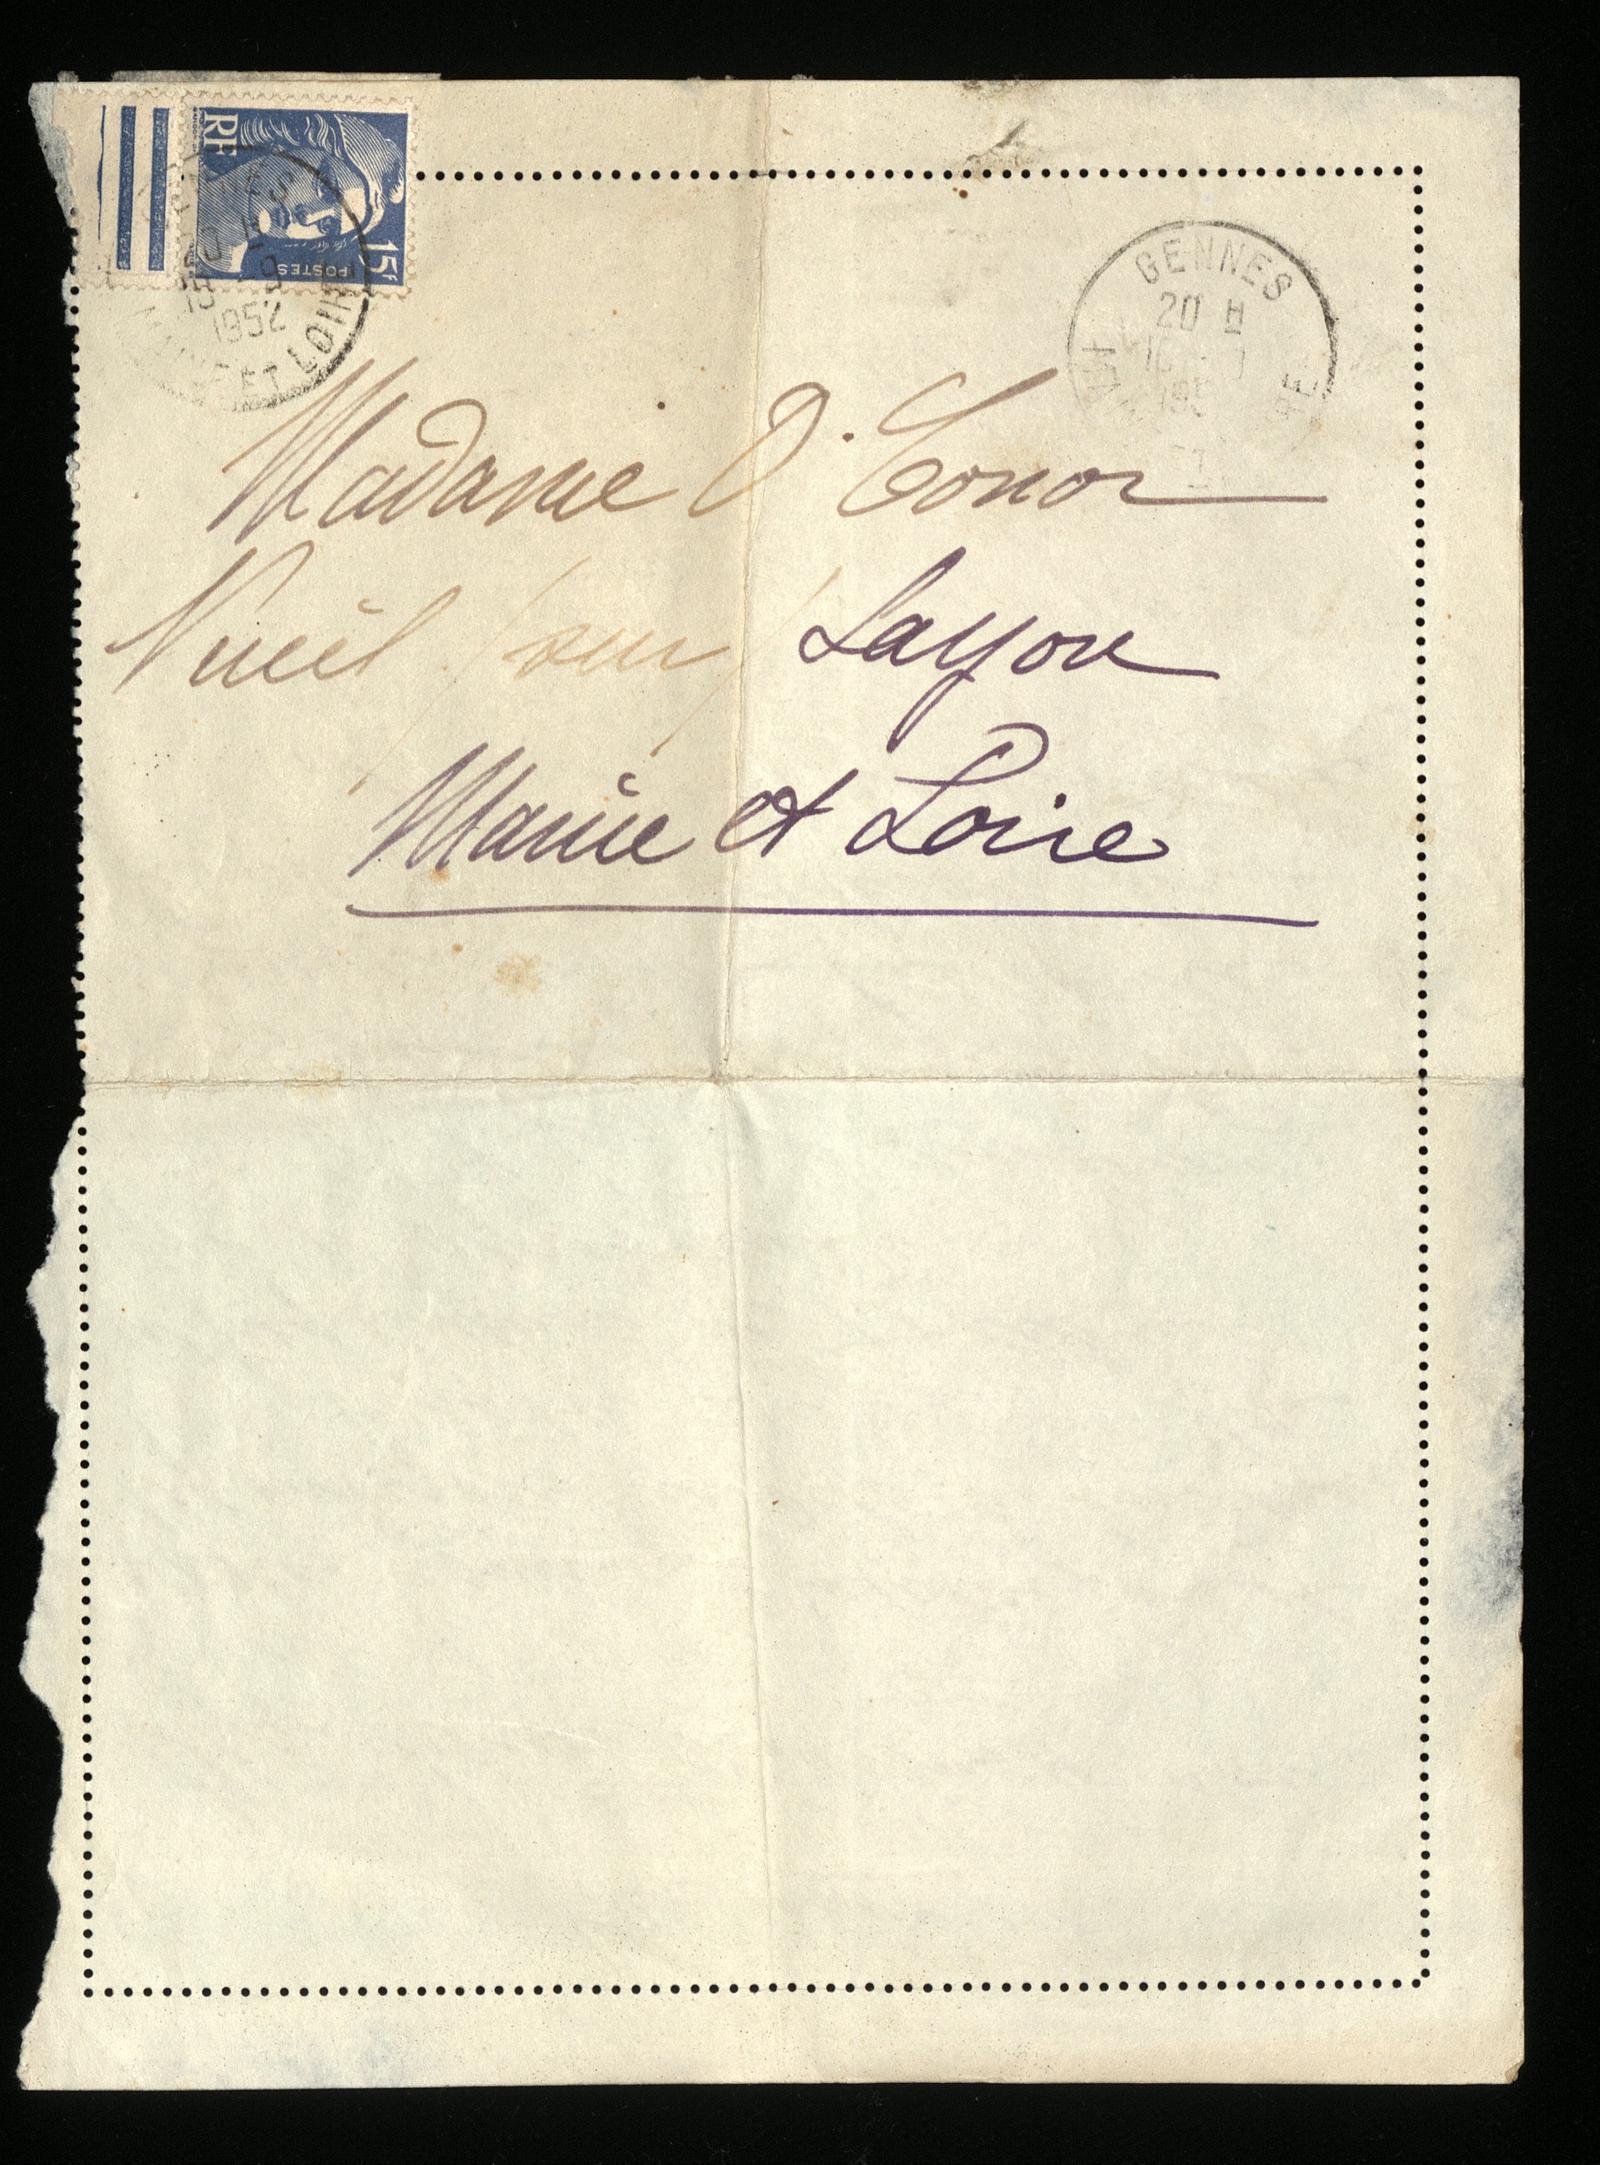 RF
15F
POSTES
1952
ET LOIRE
GENNES
20 H
Madame O'Conor
Nueil / sur / Layon
Maine et Loire